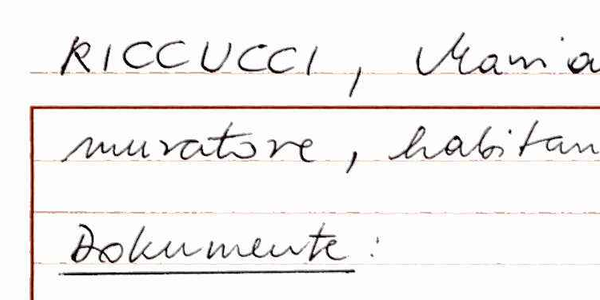 RICCUCCI, Maria
muratore, habitan
Dokumente: